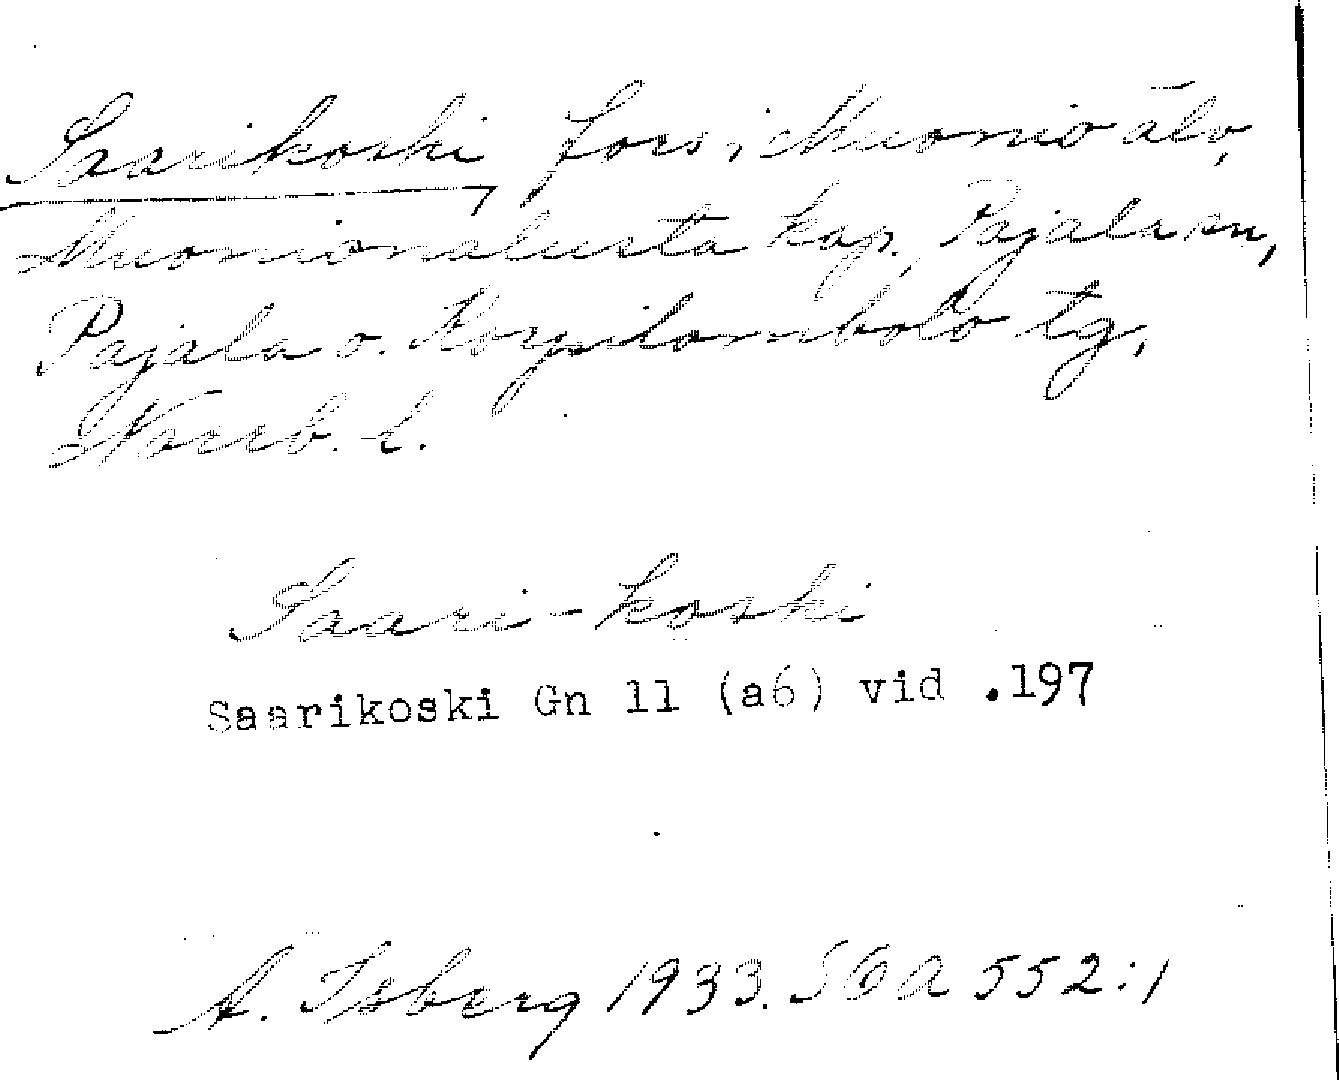 Saarikoski, fors i Muonio älv,
Muonionalusta kap., Pajala sn,
Pajala o. Korpilombolo tg,
Norrb. l.
Saari-koski
Saarikoski Gn 11 (a6) vid .197
A. Isberg 1933. SOA 552:1